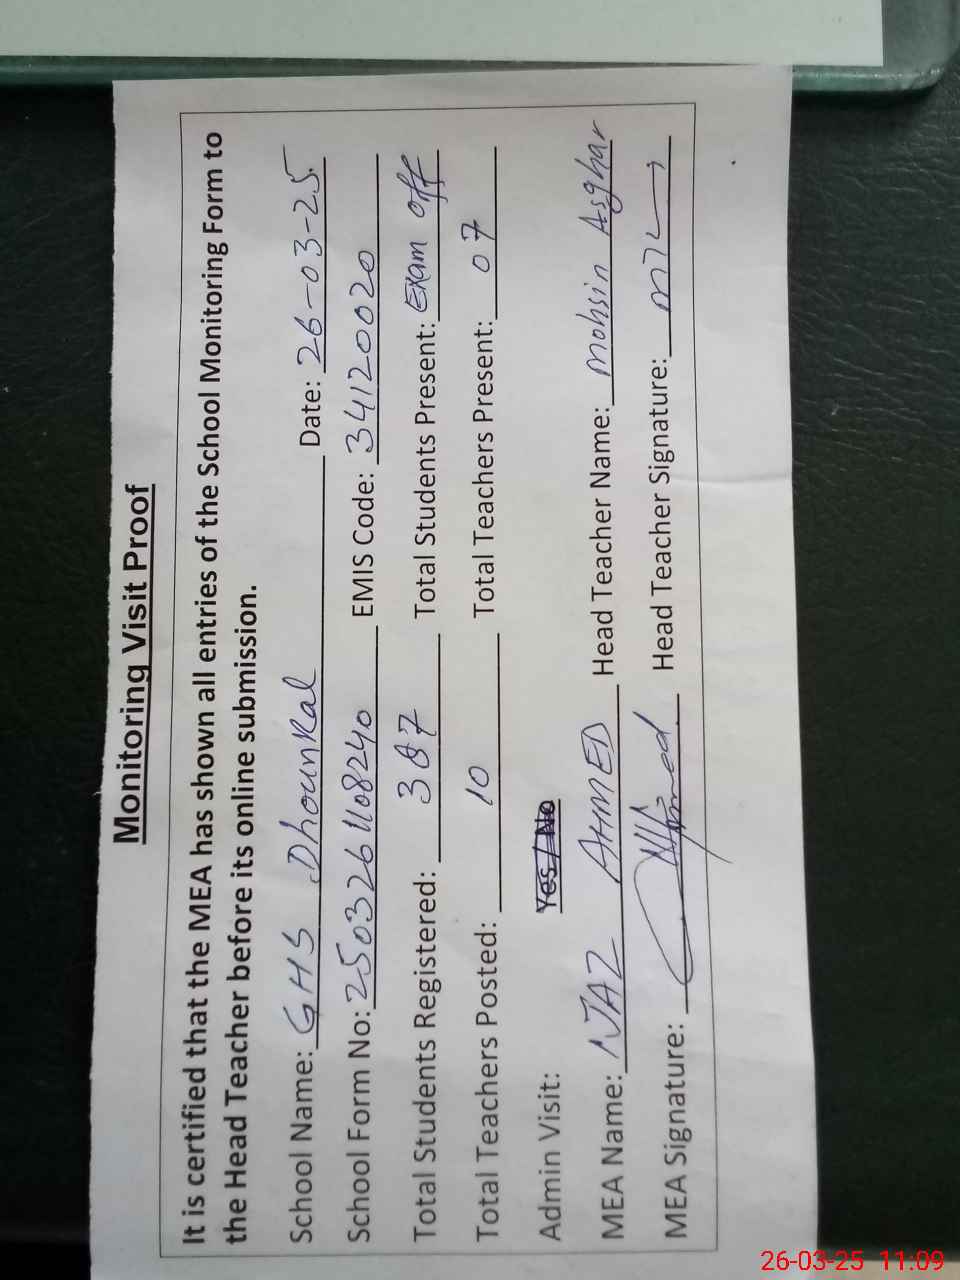 Monitoring Visit Proof
It is certified that the MEA has shown all entries of the School Monitoring Form to
the Head Teacher before its online submission.
School Name: GHS Dhounkal Date: 26-03-25
School Form No: 2503261108240 EMIS Code: 34120020
Total Students Registered: 387 Total Students Present: Exam off
Total Teachers Posted: 10 Total Teachers Present: 07
Admin Visit: Yes/No
MEA Name: NJAZ AHMED Head Teacher Name: Mohsin Asghar
MEA Signature: Head Teacher Signature:
26-03-25 11:09